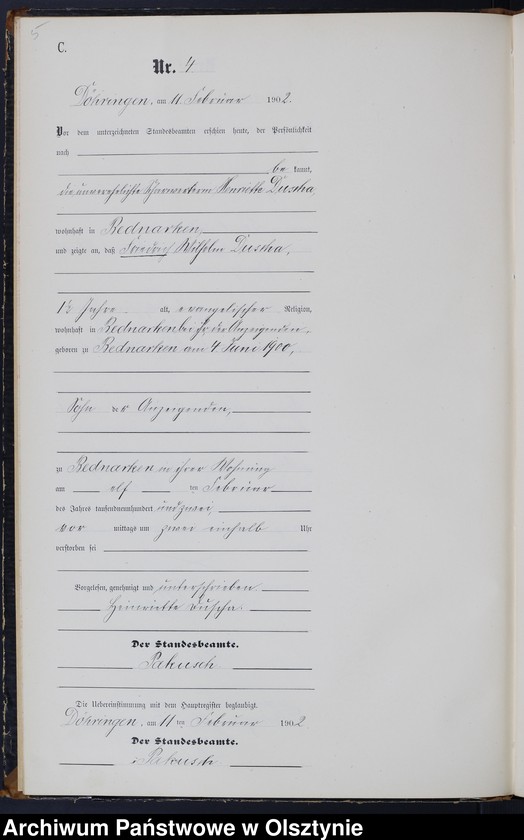 5
C.
Nr. 4
Döhringen, am 11 Februar 1902.
Vor dem unterzeichneten Standesbeamten erschien heute, der Persönlichkeit
nach
be kannt,
die unverehelichte Henriette Duscha
wohnhaft in Bednarken,
und zeigte an, daß Friedrich Wilhelm Duscha,
Jahre alt, evangelischer Religion,
wohnhaft in Bednarken bei der Anzeigenden,
geboren zu Bednarken am 4. Juni 1900,
Sohn der Anzeigenden,
zu Bednarken in ihrer Wohnung
am elf ten Februar
des Jahres tausendneunhundert und zwei,
vor mittags um zwei einhalb Uhr
verstorben sei
Vorgelesen, genehmigt und unterschrieben
Heinriette Duscha
Der Standesbeamte.
Pakusch
Die Uebereinstimmung mit dem Hauptregister beglaubigt.
Döhringen, am 11 ten Februar 1902
Der Standesbeamte.
Pakusch
Archiwum Państwowe w Olsztynie